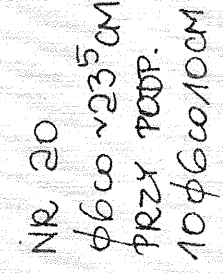 NR 20
φ6 co ~23⁵ CM
PRZY PODP.
10 φ6 co 10 CM